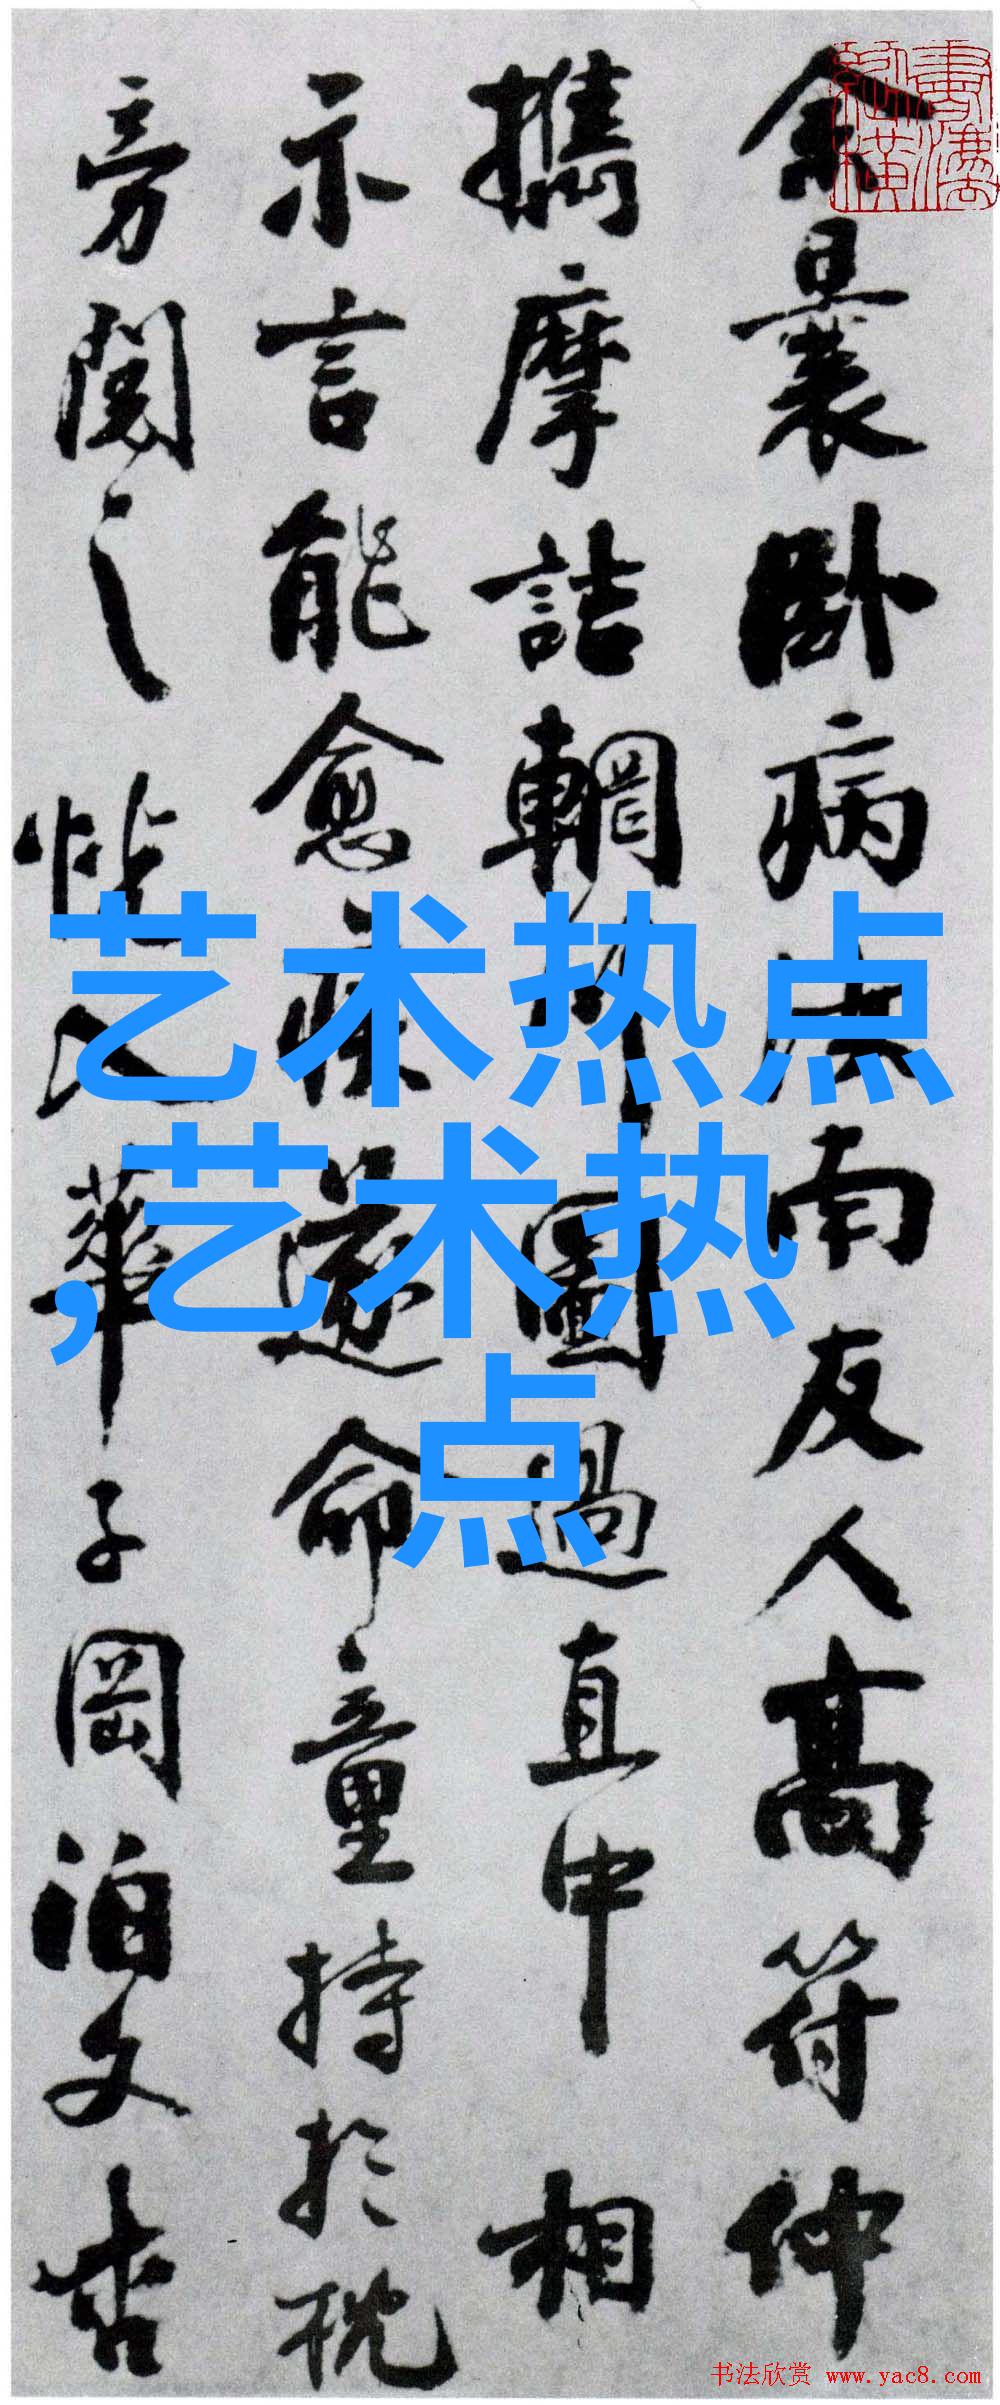 余曩卧病汝南友人高符仲
攜摩詰輞川圖過直中相
示言能愈疾遂命童持於枕
旁閱之恍入華子岡泊文杏
艺术热点
,艺术热
点
书法欣赏 www.yac8.com